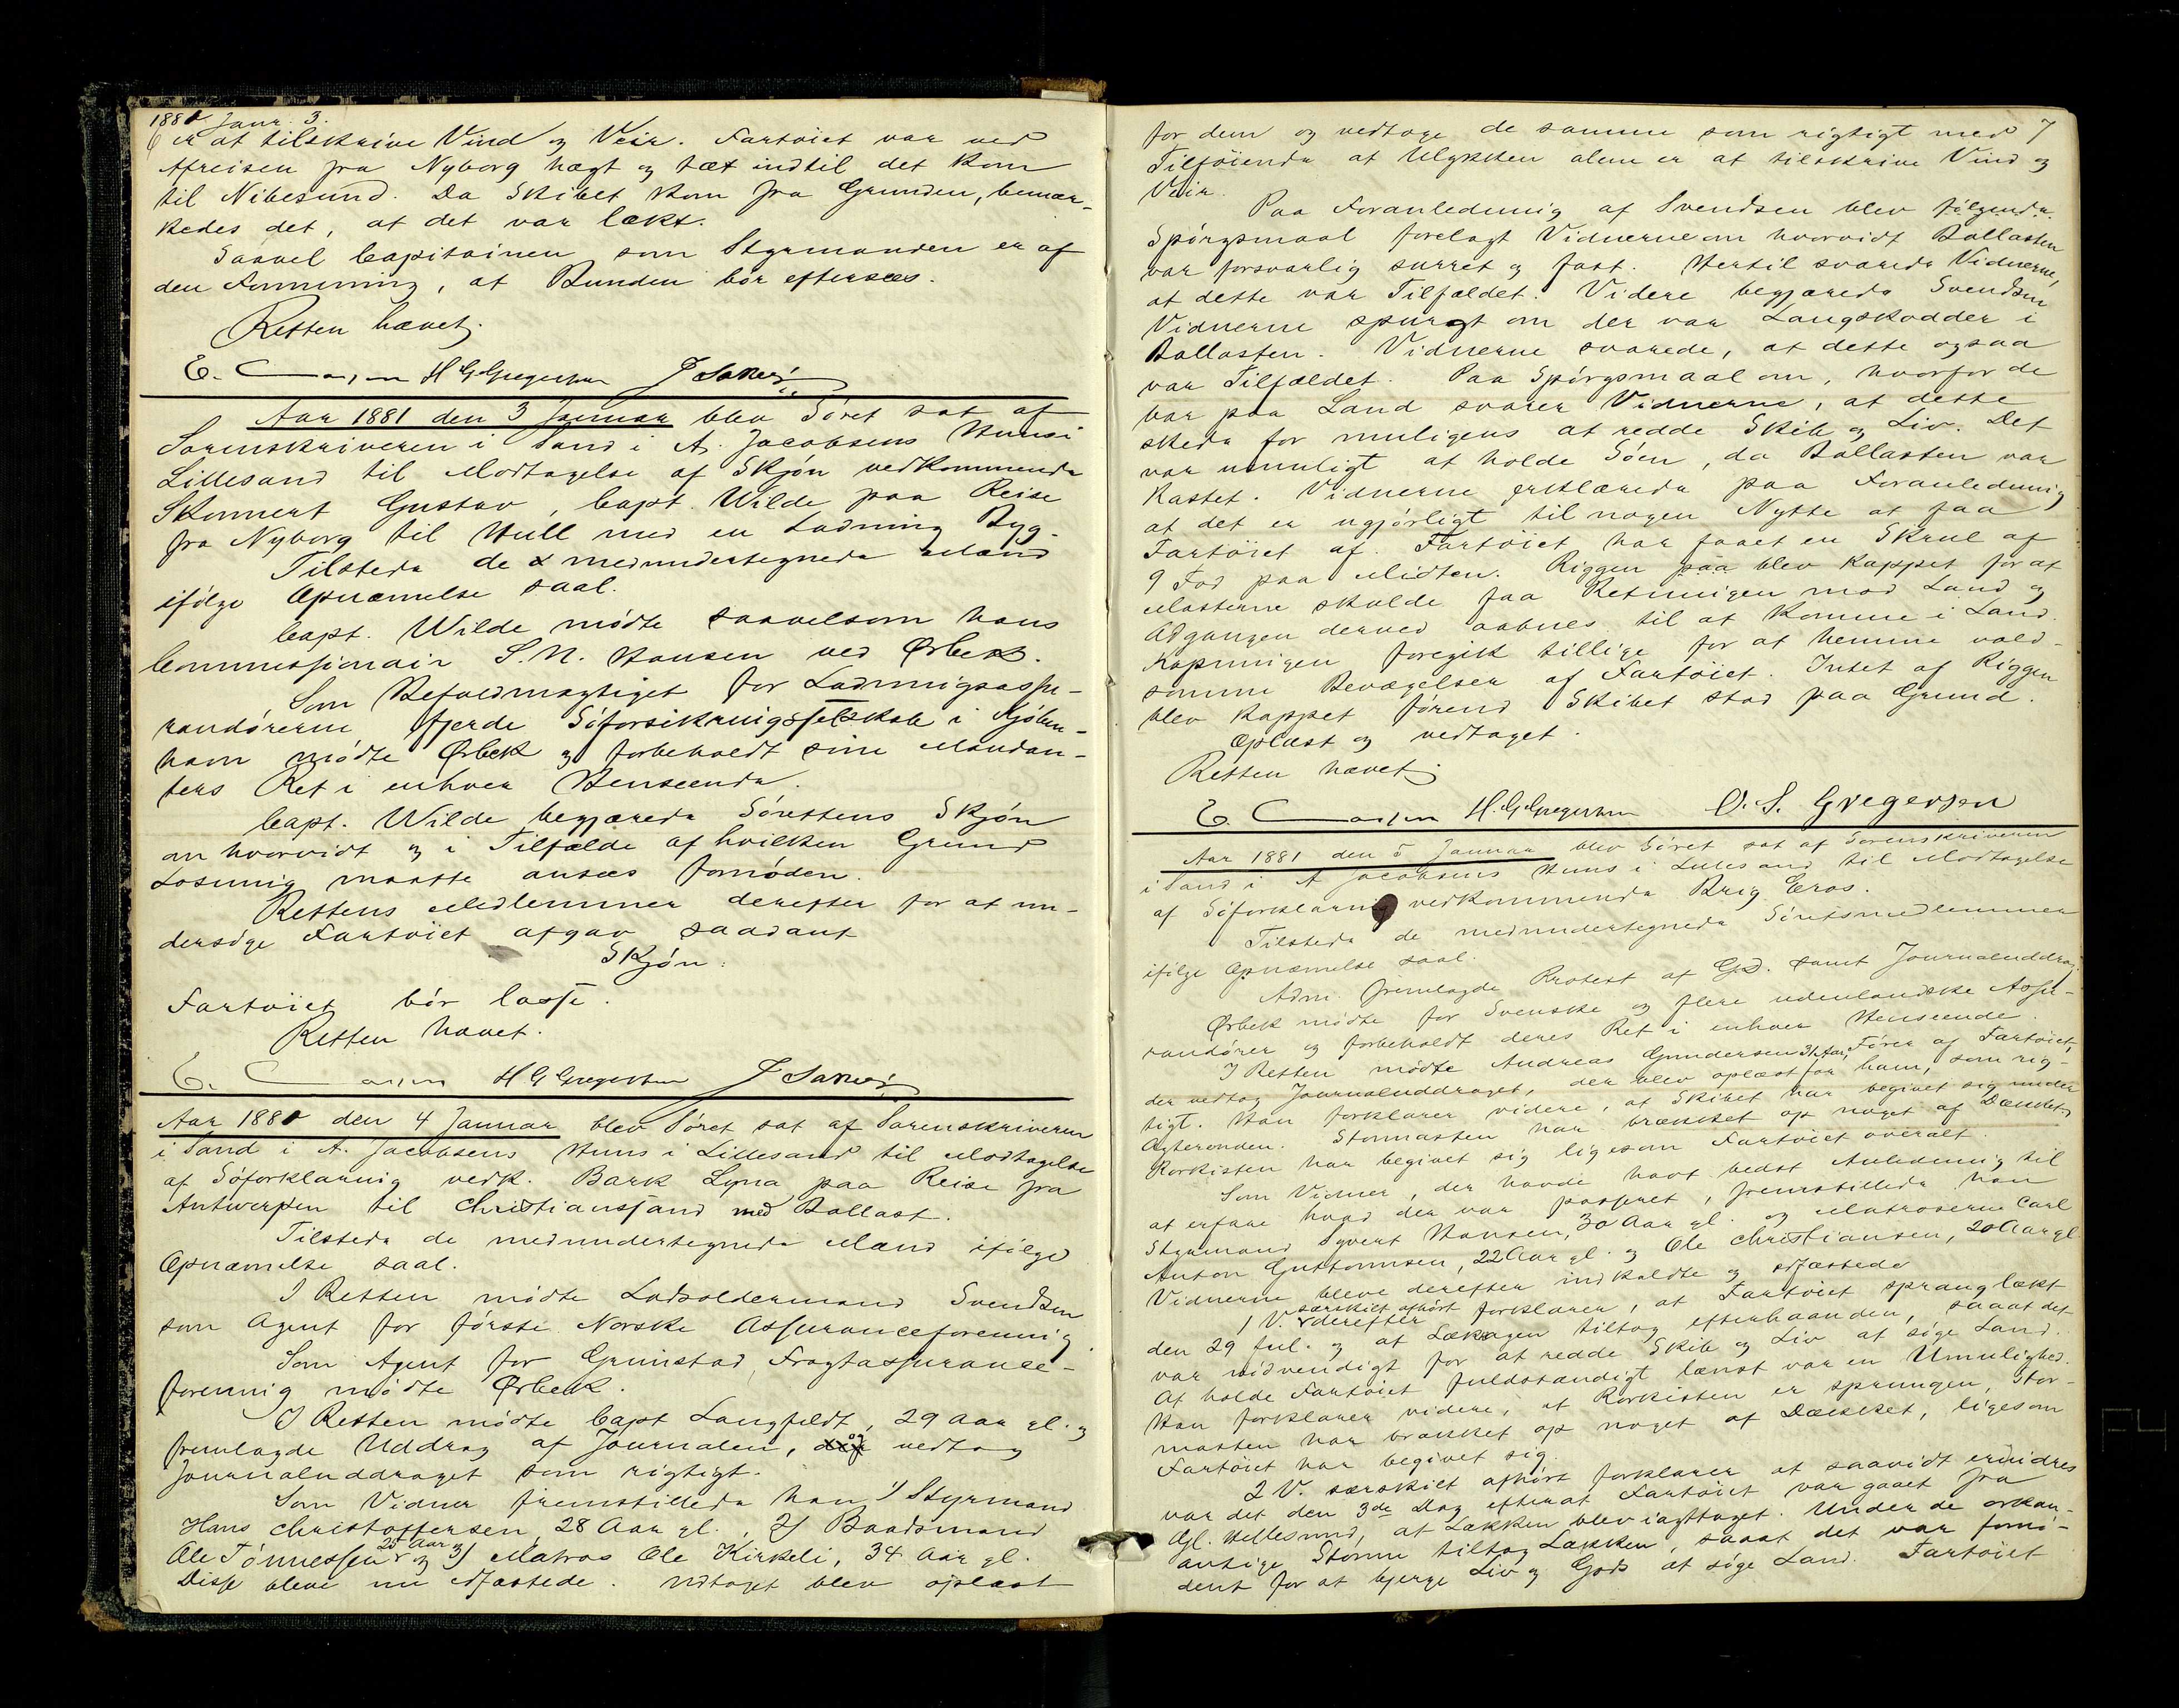 1881 Janr. 3.
6
er at tilskrive Vind og Veir. Fartöiet var ved
Afreisen fra Nyborg tægt og tæt indtil det kom
til Nibesund. Da Skibet kom fra Grunden, bemær-
kedes det, at det var lækt.
Saavel Capitainen som Styrmanden er af
den Formening, at Bunden bör eftersees.
Retten hævet.
H G Gregersen
Aar 1881 den 3 Januar blev Söret sat af
Sorenskriveren i Sand i A. Jacobsens Huus i
Lillesand til Modtagelse af Skjön vedkommende
Skonnert Gustav, Capt. Wilde paa Reise
fra Nyborg til Hull med en Ladning Byg.
Tilstede de medundertegnede Mænd
ifölge Opnævnelse saal.
Capt. Wilde mödte saavelsom hans
Commissionair S. N. Hansen ved Ørbek.
Som Befuldmægtiget for Ladningsassu-
randörerne fjerde Söforsikringsselskab i Kjöben-
havn mödte Ørbek og forbeholdt sine Mandan-
ters Ret i enhver Henseende.
Capt. Wilde begjærede Sörettens Skjön
om hvorvidt og i Tilfælde af hvilken Grund
Losning maatte ansees fornöden.
Rettens Medlemmer derefter for at un-
dersöge Fartöiet afgav saadant
Skjön:
Fartöiet bör losse.
Retten hævet.
H G Gregersen
Aar 1881 den 4 Januar blev Söret sat af Sorenskriveren
i Sand i A. Jacobsens Huus i Lillesand til Modtagelse
af Söforklaring vedk. Bark Lyna paa Reise fra
Antwerpen til Christianssand med Ballast.
Tilstede de medundertegnede Mænd ifölge
Opnævnelse saal.
I Retten mödte Lodsoldermand Svendsen
som Agent for förste Norske Assuranceforening
Som Agent for Grimstad Fragtassurance-
forening mödte Ørbek.
I Retten mödte Capt Langfeldt, 29 Aar gl. og
fremlagde Uddrag af Journalen, og vedtog
Journaluddraget som rigtigt.
Som Vidner fremstillede han 1) Styrmand
Hans Christoffersen, 28 Aar gl., 2) Baadsmand
Ole Tönnessen 25 Aar og 3) Matros Ole Kirkeli, 34 Aar gl.
Disse bleve nu edfæstede. Udtoget blev oplæst
for dem og vedtoge de samme som rigtigt med 7
Tilföiende at Ulykken alene er at tilskrive Vind og
Veir.
Paa Foranledning af Svendsen blev fölgende
Spörgsmaal forelagt Vidnerne om hvorvidt Ballasten
var forsvarlig surret og fast. Hertil svarede Vidnerne,
at dette var Tilfældet. Videre begjærede Svendsen
Vidnerne spurgt om der var Langskodder i
Ballasten. Vidnerne svarede, at dette ogsaa
var Tilfældet. Paa Spörgsmaal om, hvorfor de
bar paa Land svarer Vidnerne, at dette
skede for muligens at redde Skib og Liv. Det
var umuligt at holde Söen, da Ballasten var
Kastet. Vidnerne erklærede paa Foranledning
at det er ugjörligt til nogen Nytte at faa
Fartöiet af. Fartöiet har faaet en Skrul af
9 Fod paa Midten. Riggen paa blev kappet for at
Masterne skulde faa Retningen mod Land og
Adgangen derved aabnes til at komme i Land.
Kapningen foregik tillige for at hemme vold-
somme Bevægelser af Fartöiet. Intet af Riggen
blev kappet förend Skibet stod paa Grund.
Oplæst og vedtaget.
Retten hævet.
H. G. Gregersen O. S. Gregersen
Aar 1881 den 5 Januar blev Söret sat af Sorenskriveren
i Sand i A Jacobsens Huus i Lillesand til Modtagelse
af Söforklaring vedkommende Brig Eros.
Tilstede de medundertegnede Söretsmedlemmer
ifölge Opnævnelse saal.
Adm. fremlagde Protest af Gd. samt Journaluddrag.
Ørbek mödte for Svenske og flere udenlandske Assu-
randörer og forbeholdt deres Ret i enhver Henseende.
I Retten mödte Andreas Gundersen 31 Aar, Förer af Fartöiet,
der vedtog Journaluddraget, der blev oplæst for ham, som rig-
tigt. Han forklarer videre, at Skibet har begivet sig under
Agterenden. Stormasten har brækket op noget af Dækket,
Rorkisten har begivet sig ligesom Fartöiet overalt.
Som Vidner, der havde havt bedst Anledning til
at erfare hvad der var passeret, fremstillede han
Styrmand Syvert Hansen, 30 Aar gl. og Matroserne Carl
Anton Guttormsen, 22 Aar gl. og Ole Christiansen, 20 Aar gl
Vidnerne bleve derefter indkaldte og edfæstede
1 V. særskilt afhört derefter forklarer, at Fartöiet sprang lækt
den 29 Jul. og at Lækagen tiltog efterhaanden, saaat det
var nödvendigt for at redde Skib og Liv at söge Land.
At holde Fartöiet fuldstændigt lænst var en Umulighed.
Han forklarer videre, at Rorkisten er sprungen, Stor-
masten har brækket op noget af Dækket, ligesom
Fartöiet har begivet sig.
2 V. særskilt afhört forklarer at saavidt erindres
var det den 3de Dag efterat Fartöiet var gaaet fra
Gl. Hellesund, at Lækken blev iagttaget. Under de orkan-
antige Storme tiltog Lækken, saaat det var fornö-
dent for at bjerge Liv og Gods at söge Land. Fartöiet